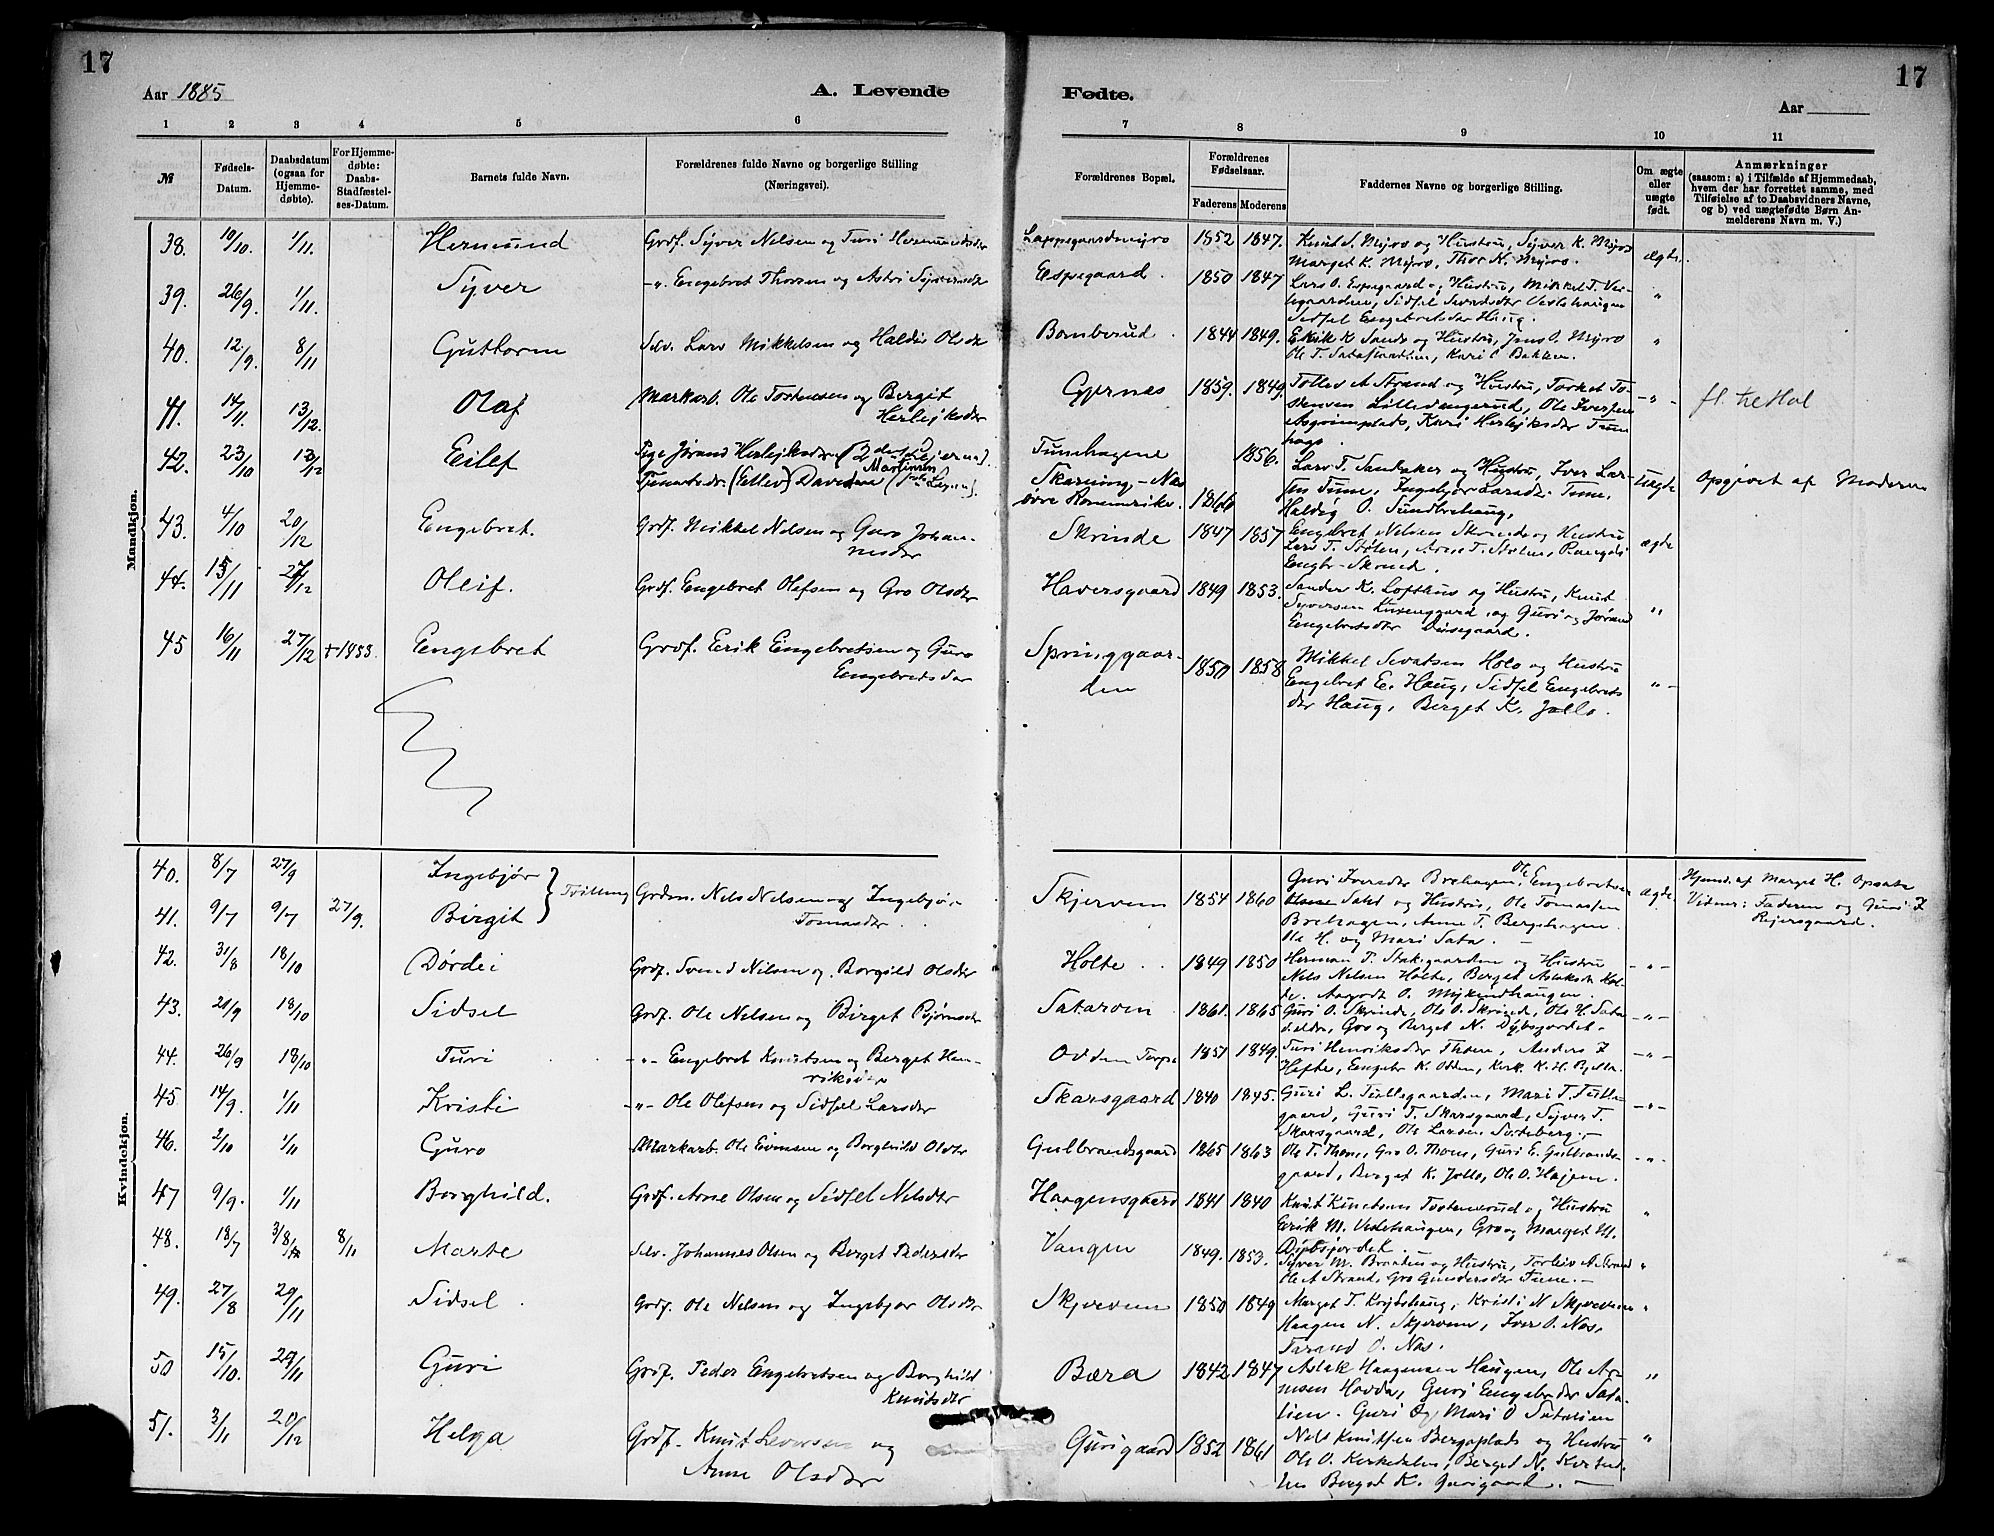 17
17
Aar 1885
A. Levende
Fødte.
Aar
1 2 3 4 5 6 7 8 9 10 11
№
Fødsels-
Datum.
Daabsdatum
(ogsaa for
Hjemme-
døbte).
For Hjemme-
døbte:
Daabs-
Stadfæstel-
ses-Datum.
Barnets fulde Navn.
Forældrenes fulde Navne og borgerlige Stilling
(Næringsvei).
Forældrenes Bopæl.
Forældrenes
Fødselsaar.
Faderens Moderens
Faddernes Navne og borgerlige Stilling.
Om ægte
eller
uægte
født.
Anmærkninger
(saasom: a) i Tilfælde af Hjemmedaab,
hvem der har forrettet samme, med
Tilføielse af to Daabsvidners Navne,
og b) ved uægtefødte Børn An-
melderens Navn m. V.)
Mandkjøn.
38. 10/10. 1/11. Hermund Grdf. Syver Nelsen og Turi Hermundsdtr Lappegaardsmyro 1852 1847. Knut S. Myro og Hustru, Syver K. Myro
Marget K. Myro, Thor N. Myro. ægte.
39. 26/9. 1/11. Syver -"- Engebret Thorsen og Astri Syversdtr Espegaard. 1850 1847 Lars O. Espegaard og Hustru, Mikkel T. Ves-
legaarden, Sidsel Vestehaugen "
Sidsel Engebretsdtr Haug.
40. 12/9. 8/11 Guttorm Selv. Lars Mikkelsen og Haldis Olsdtr Bomberud. 1844 1849. Erik K Sando og Hustru, Jens O. Myro "
Ole T. Kari O Bakken.
41. 14/11. 13/12. Olaf Markarb. Ole Tostensen og Bergit
Herlejksdtr Gjernes 1859. 1849. Tollev A Strand og Hustru, Torket To-
stensen Ole Iversen -"-
Kari Herlejksdtr Tune
hage.
42. 23/10 13/12 Eilef Pige Jørand Herlejksdtr Tunehagene 1856. Lars T. Sandaker og Hustru, Iver Lar- uægte Opgivet af Moderen
(Eilev) Martinsen 1866 sen Tune, Ingebjør Larsdtr. Tune,
Haldis O. Sundbrehaug,
43. 4/10 20/12 Engebret. Grdf. Mikkel Nelsen og Guro Johan-
nesdtr Skrinde 1847 1857 Engebret Nelsen Skrinde og Hustru
Lars T. Stølen, Arne T. Stølen, ægte
Engbr. Skrind.
44. 15/11 27/12 Oleif. Grdf. Engebret Olefsen og Gro Olsdtr Haversgaard 1849 1853. Sander K. Lofthus og Hustru, Knut
Syversen og Guri og Jørand "
Engebretsdtr
45 16/11 27/12 Engebret Grdf. Erik Engebretsen og Guro
Engebretsdtr Springgaar-
den 1850 1858 Mikkel Sevatsen Holo og Hustru
Engebret E. Haug, Sidsel Engebrets -"-
dtr Haug, Berget K. Jallo.
Kvindekjøn.
40. 8/7 27/9 Ingebjør
41. 9/7 9/7 27/9. Birgit } Tvilling Grdm. Nels Nelsen og Ingebjør
Tomasdtr Skjervem 1854 1860 Guri Iversdtr Brehagen, Ole Engebretsen ægte Hjemd. af Marget H. Opsata
Sata og Hustru, Ole Tomassen Vidner: Faderen og Guri I
Brehagen, Anne T. Bergshagen Rejersgaard.
Ole H. og Mari Sata.
42. 31/8 18/10 Dørdei Grdf. Svend Nilsen og Borgild Olsdtr Holte. 1849 1850 Herman T. Stakgaarden og Hustru
Nels Nelsen Holte, Berget Aslaksdtr Hol- -"-
te. Aagodt O. Mykendhaugen.
43. 20/9 18/10 Sidsel Grdf. Ole Nelsen og Birget Bjørnsdtr Sataroen 1861. 1865 Guri O. Skrinde, Ole O. Skrinde, Ole H. Sata
Gro og Berget N. Dybsjordet. -"-
44. 26/9 18/10 Turi -"- Engebret Knutsen og Berget Hen-
riksdtr Odden Torpe 1851 1849. Turi Henriksdtr Thoen, Anders I -"-
Hefte, Engebr K. Odden,
45 14/9. 1/11 Kristi -"- Ole Olefsen og Sidsel Larsdtr Skarsgaard 1840 1845. Guri L. Tuftegaarden, Mari T. Tufte-
gaard, Guri T. Skarsgaard, Syver T. -"-
Skarsgaard, Ole Larsen
46. 2/10 1/11 Guro Markarb. Ole Evensen og Borghild Olsdtr Gulbrandsgaard 1865 1863 Ole T. Thon, Gro O. Thoen, Guri E. Gulbrands- -"-
gaard, Berget K. Jallo, Ole O. Hajem.
47 9/9. 1/11 Borghild. Grdf. Arne Olsen og Sidsel Nelsdtr Haagensgaard 1841 1840 Knut Knutsen og Hustru "
Erik M. Gro og Marget M.
Dybsjordet.
48. 18/7 8/11 Marte Selv. Johannes Olsen og Berget Pedersdtr Vangen 1849. 1853. Syver M. Braaten og Hustru, Torleiv A. Strand "
Ole A Strand, Gro Gundersdtr Tune.
49. 27/8 29/11 Sidsel. Grdf. Ole Nelsen og Ingebjør Olsdtr Skjervem 1850 1849 Marget T. Kristi N Skjervem "
Haagen N. Skjervem, Iver O. Nos,
O. Nos.
50 15/10. 29/11 Guri Grdf. Peder Engebretsen og Borghild
Knutsdtr Bæra 1842 1847 Aslak Haagensen Haugen, Ole Ar- "
nesen Hovda, Guri Engebrdtr Sata-
lien. Guri Og Mari O Satalien
51. 3/11 20/12 Helga Grdf. Knut Leversen og
Anne Olsdtr Gurigaard 1852 1861 Nels Knutsen Bergsplads og Hustru "
Ole O. Kirkedalen, Berget N.
Berget K. Gurigaard.